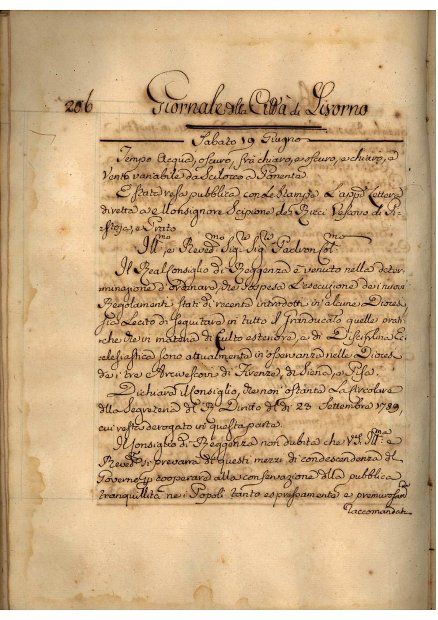 206
Giornale della Città di Livorno
Sabato 19 Giugno
Tempo Acqua, oscuro, frà chiaro, e oscuro, e chiaro, e
Vento variabile da Scilocco a Ponente
È stata resa pubblica con Le Stampe L'app.a Lettera
diretta a Monsignore Scipione de' Ricci Vescovo di Pi-
stoja, e Prato
Ill.mo, e Rev.mo Sig.re Sig.re Padron Col.mo
Il Real Consiglio di Reggenza è venuto nella deter-
minazione d'ordinare, che sospesa L'esecuzione dei nuovi
Regolamenti stati di recente introdotti in alcune Diocesi
sia Lecito di seguitare in tutto il Granducato quelle prati-
che che in materia di Culto esteriore, e di Disciplina Ec-
clesiastica sono attualmente in osservanza nelle Diocesi
de i tre Arcivescovi di Firenze, di Siena, e Pisa.
Dichiara il Consiglio, che non ostante La Circolare
della Segreteria del R. Diritto de' dì 23 Settembre 1789
cui resta derogato in questa parte.
Il Consiglio di Reggenza non dubita che VS. Ill.ma e
Rev.ma si prevarrà di questi mezzi di condescendenza del
Governo p cooperare alla conservazione della pubblica
tranquillità ne i Popoli tanto espressamente e premurosam.te
raccomandata